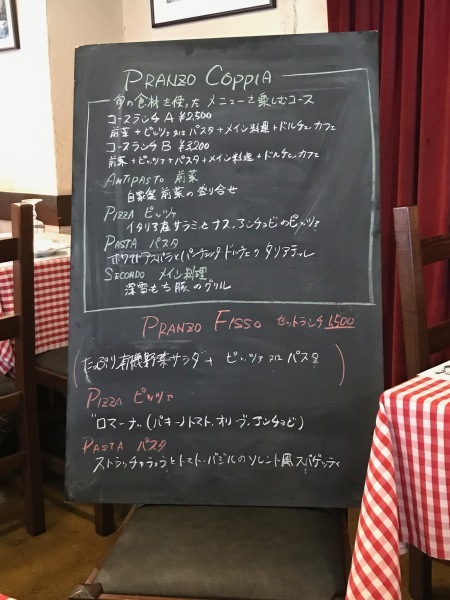 PRANZO COPPIA
旬の食材を使った メニューを楽しむコース
コースランチ A ¥2,500
前菜 + ピッツァ 又は パスタ + メイン料理 + ドルチェ、カフェ
コースランチ B ¥3,200
前菜 + ピッツァ + パスタ + メイン料理 + ドルチェ、カフェ
ANTIPASTO 前菜
自家製 前菜の盛り合せ
PIZZA ピッツァ
イタリア産サラミとナス、アンチョビのピッツァ
PASTA パスタ
ホワイトアスパラとパンチェッタ ドルチェの タリアテッレ
SECONDO メイン料理
深雪もち豚のグリル
PRANZO FISSO セットランチ 1,500
(たっぷり有機野菜サラダ + ピッツァ 又は パスタ)
PIZZA ピッツァ
ロマーナ (パキーノトマト、オリーブ、アンチョビ)
PASTA パスタ
ストラッチャテッラとトマト、バジルのソレント風スパゲッティ